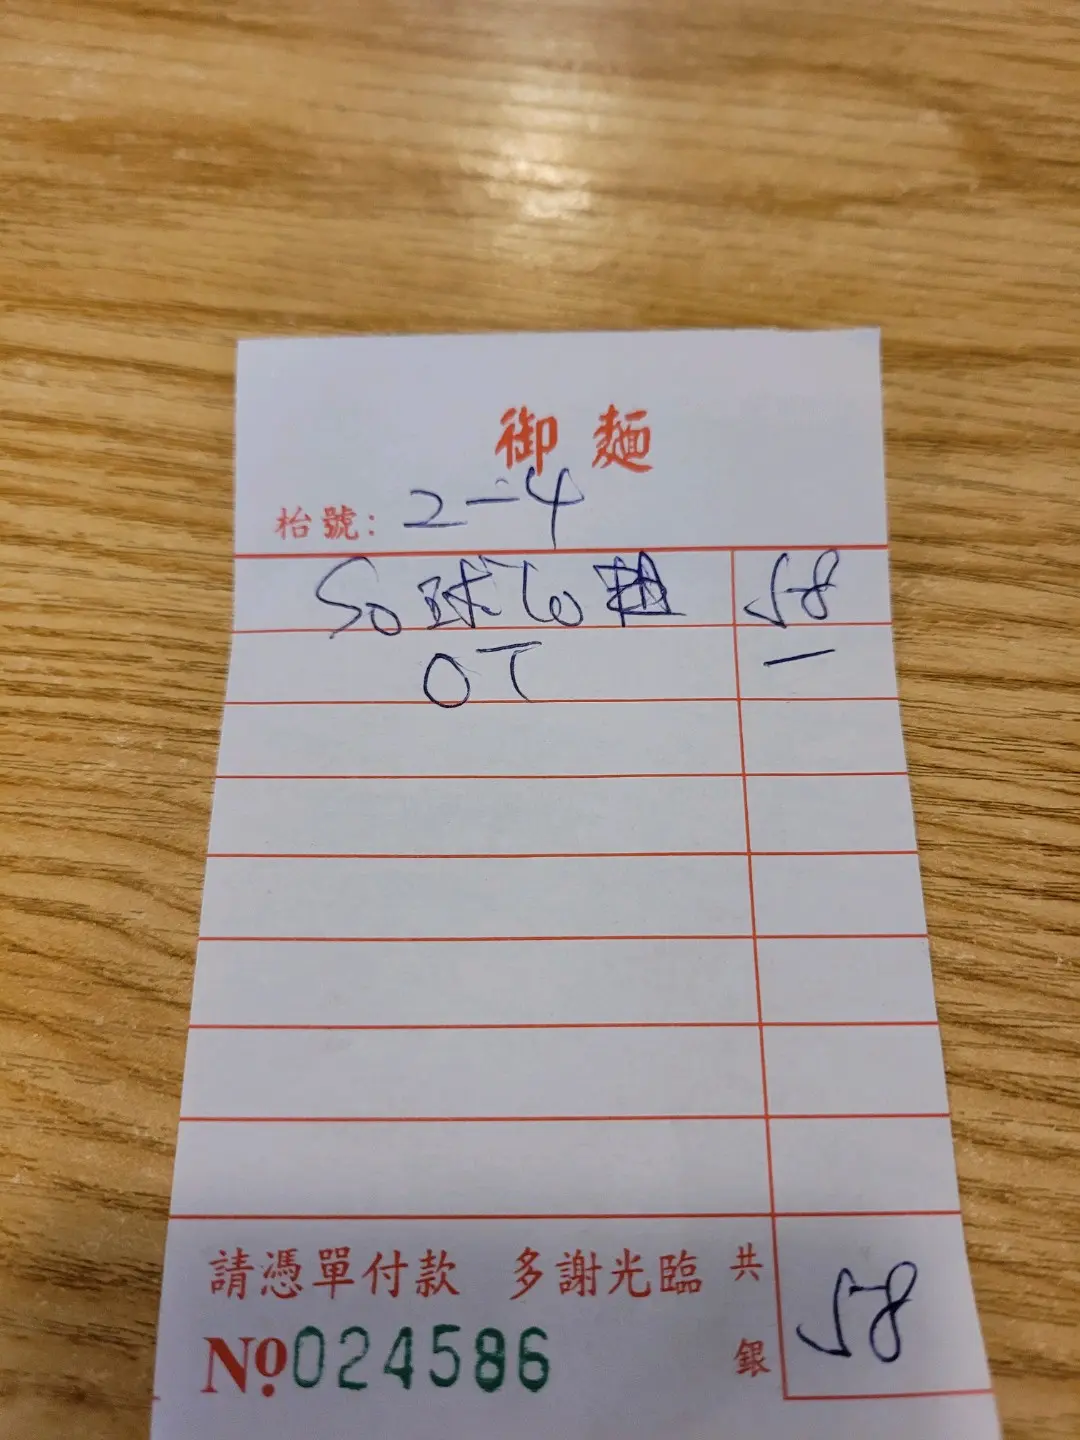 御麵
枱號: 2-4
球 58
OT —
請憑單付款 多謝光臨 共銀 58
Nº 024586